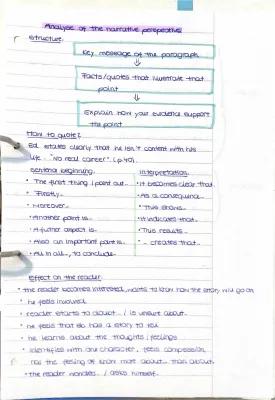 Analyse of the narrative perspective
Structure
Key message of the paragraph
Facts/quotes that illustrate that
point
Explain how your evidence support
the point
How to quote?
Ed states clearly that he isn't content with his
life. "No real career" (p.40).
Sentence beginning:
• The first thing I point out..
• Firstly..
• Moreover..
• Another point is..
• A futher aspect is..
• Also an important point is..
• All in all, to conclude..
Interpretation:
• It becomes clear that..
• As a consequence..
• This shows..
• It indicates that..
• This results..
• .. creates that..
Effect on the reader:
• the reader becomes interested, wants to know how the story will go on
• he feels involved
• reader starts to doubt.. / is unsure about..
• he feels that do has a story to tell
• he learns about the thoughts/feelings
• identifies with the character, feels compassion
has the feeling of know more about.. than
• the reader wonders../asks himself..